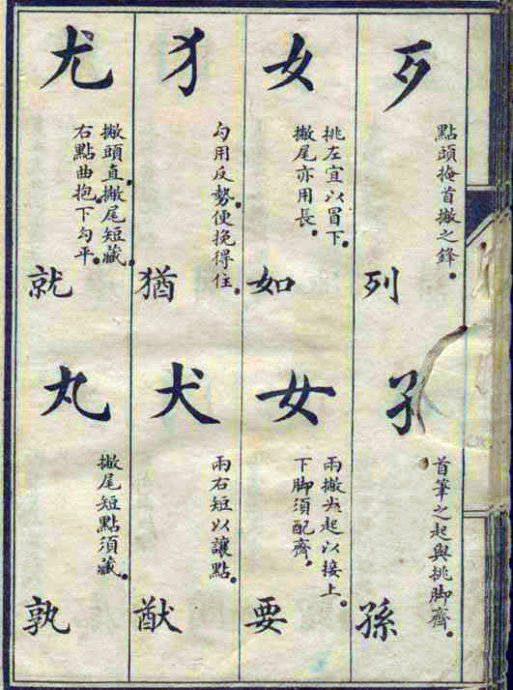 歹
點頭掩首撇之鋒。
列
子
首筆之起與挑脚齊。
孫
女
挑左宜以冒下。
撇尾亦用長。
如
女
兩撇尖起以接上。
下脚須配齊。
要
犭
勾用反勢。便挽得住。
猶
犬
兩右短以讓點。
猷
尤
撇頭直。撇尾短藏。
右點曲抱。下勾平。
就
丸
撇尾短。點須藏。
孰